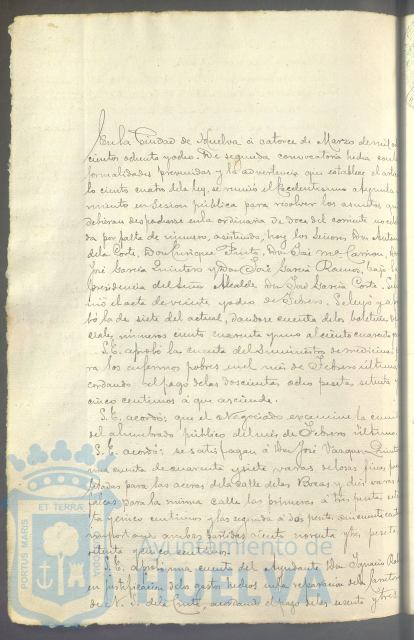 En la Ciudad de Huelva á catorce de Marzo de mil
cientos ochenta y ocho. De segunda convocatoria hecha con las
formalidades prevenidas y la advertencia que establece el artícu
lo ciento cuatro de la ley, se reunió el Excelentísimo Ayunta
miento en sesion pública para resolver los asuntos que
debieran despacharse en la ordinaria de doce del corriente no celebra
da por falta de número, asistiendo, hoy los Señores Don Antonio
de la Corte, Don Enrique Don José Don
José Garcia Quintero y Don José Garcia Ramos, bajo la
Presidencia del Señor Alcalde Don José Garcia Corte.
el acta de veinte y ocho de Febrero. Se leyó y apro
bó la de siete del actual, dandose cuenta de los boletines ofi
ciales, números ciento cuarenta y uno al ciento cuarenta
S.E. aprobó la cuenta del Suministro de medicinas pa
ra los enfermos pobres en el mes de Febrero último
cordando el pago de las doscientas ocho pesetas, setenta y
cinco centimos á que asciende.
S.E. acordó: que el Negociado examine la cuenta
del alumbrado público del mes de Febrero último.
S.E. acordó: se satisfagan á Don José Vazquez
una cuenta de cuarenta y siete varas de losas finas,
para las aceras de la Calle de las Bocas y diez varas
para la misma calle las primeras á tres pesetas
ta y cinco centimos y las segundas á dos pesetas cincuenta
importando ambas partidas ciento noventa y tres pesetas
y cinco centimos.
S.E. aprobó una cuenta del Ayudante Don Ignacio
en justificacion de los gastos hechos en la reparacion de la
de N. S. de la Cinta acordando el pago de las sesenta y tres
PORTUS MARIS ET TERRAE CUSTODIA
Ayuntamiento de
HUELVA